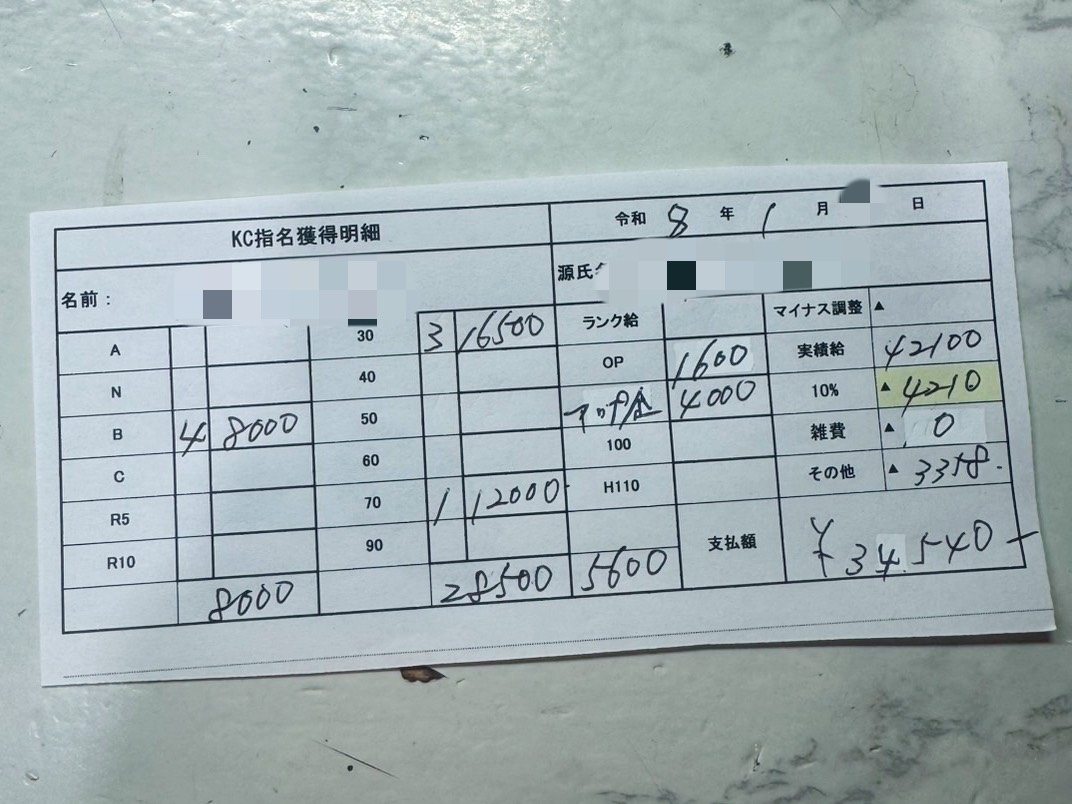 KC指名獲得明細
令和 8 年 1 月 日
名前：
源氏
A 30 3 16500 ランク給 マイナス調整 ▲
N 40 OP 1600 実績給 42100
B 4 8000 50 アップ金 4000 10% ▲ 4210
C 60 100 雑費 ▲ 0
R5 70 1 12000 H110 その他 ▲ 3358.
R10 90 支払額 ¥34.540-
8000 28500 5600